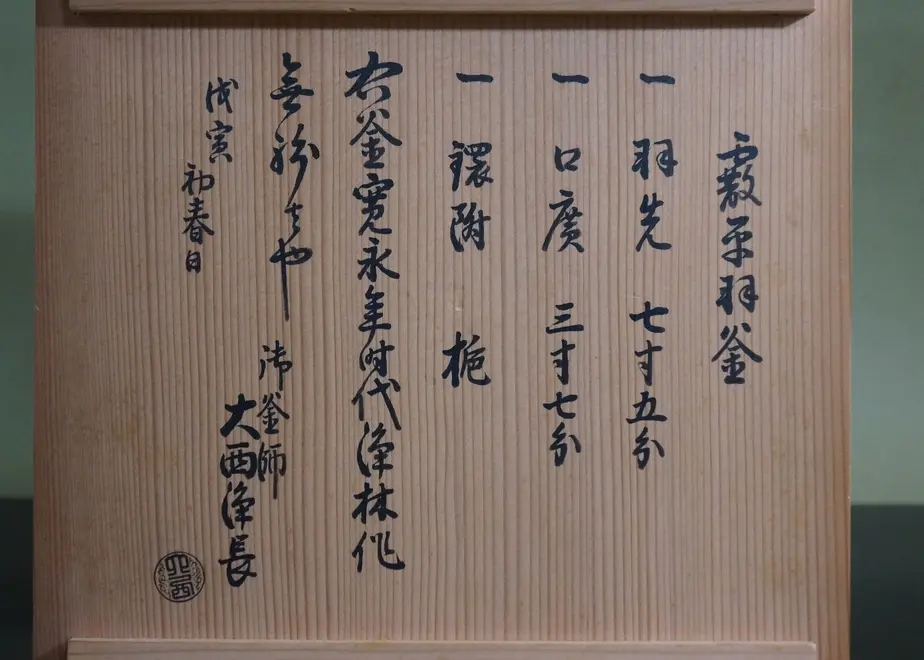 霰平羽釜
一 羽先 七寸五分
一 口廣 三寸七分
一 鐶附 梔
右釜寛永年時代浄林作
無紛者也
御釜師
大西浄長
戊寅
初春日
大西